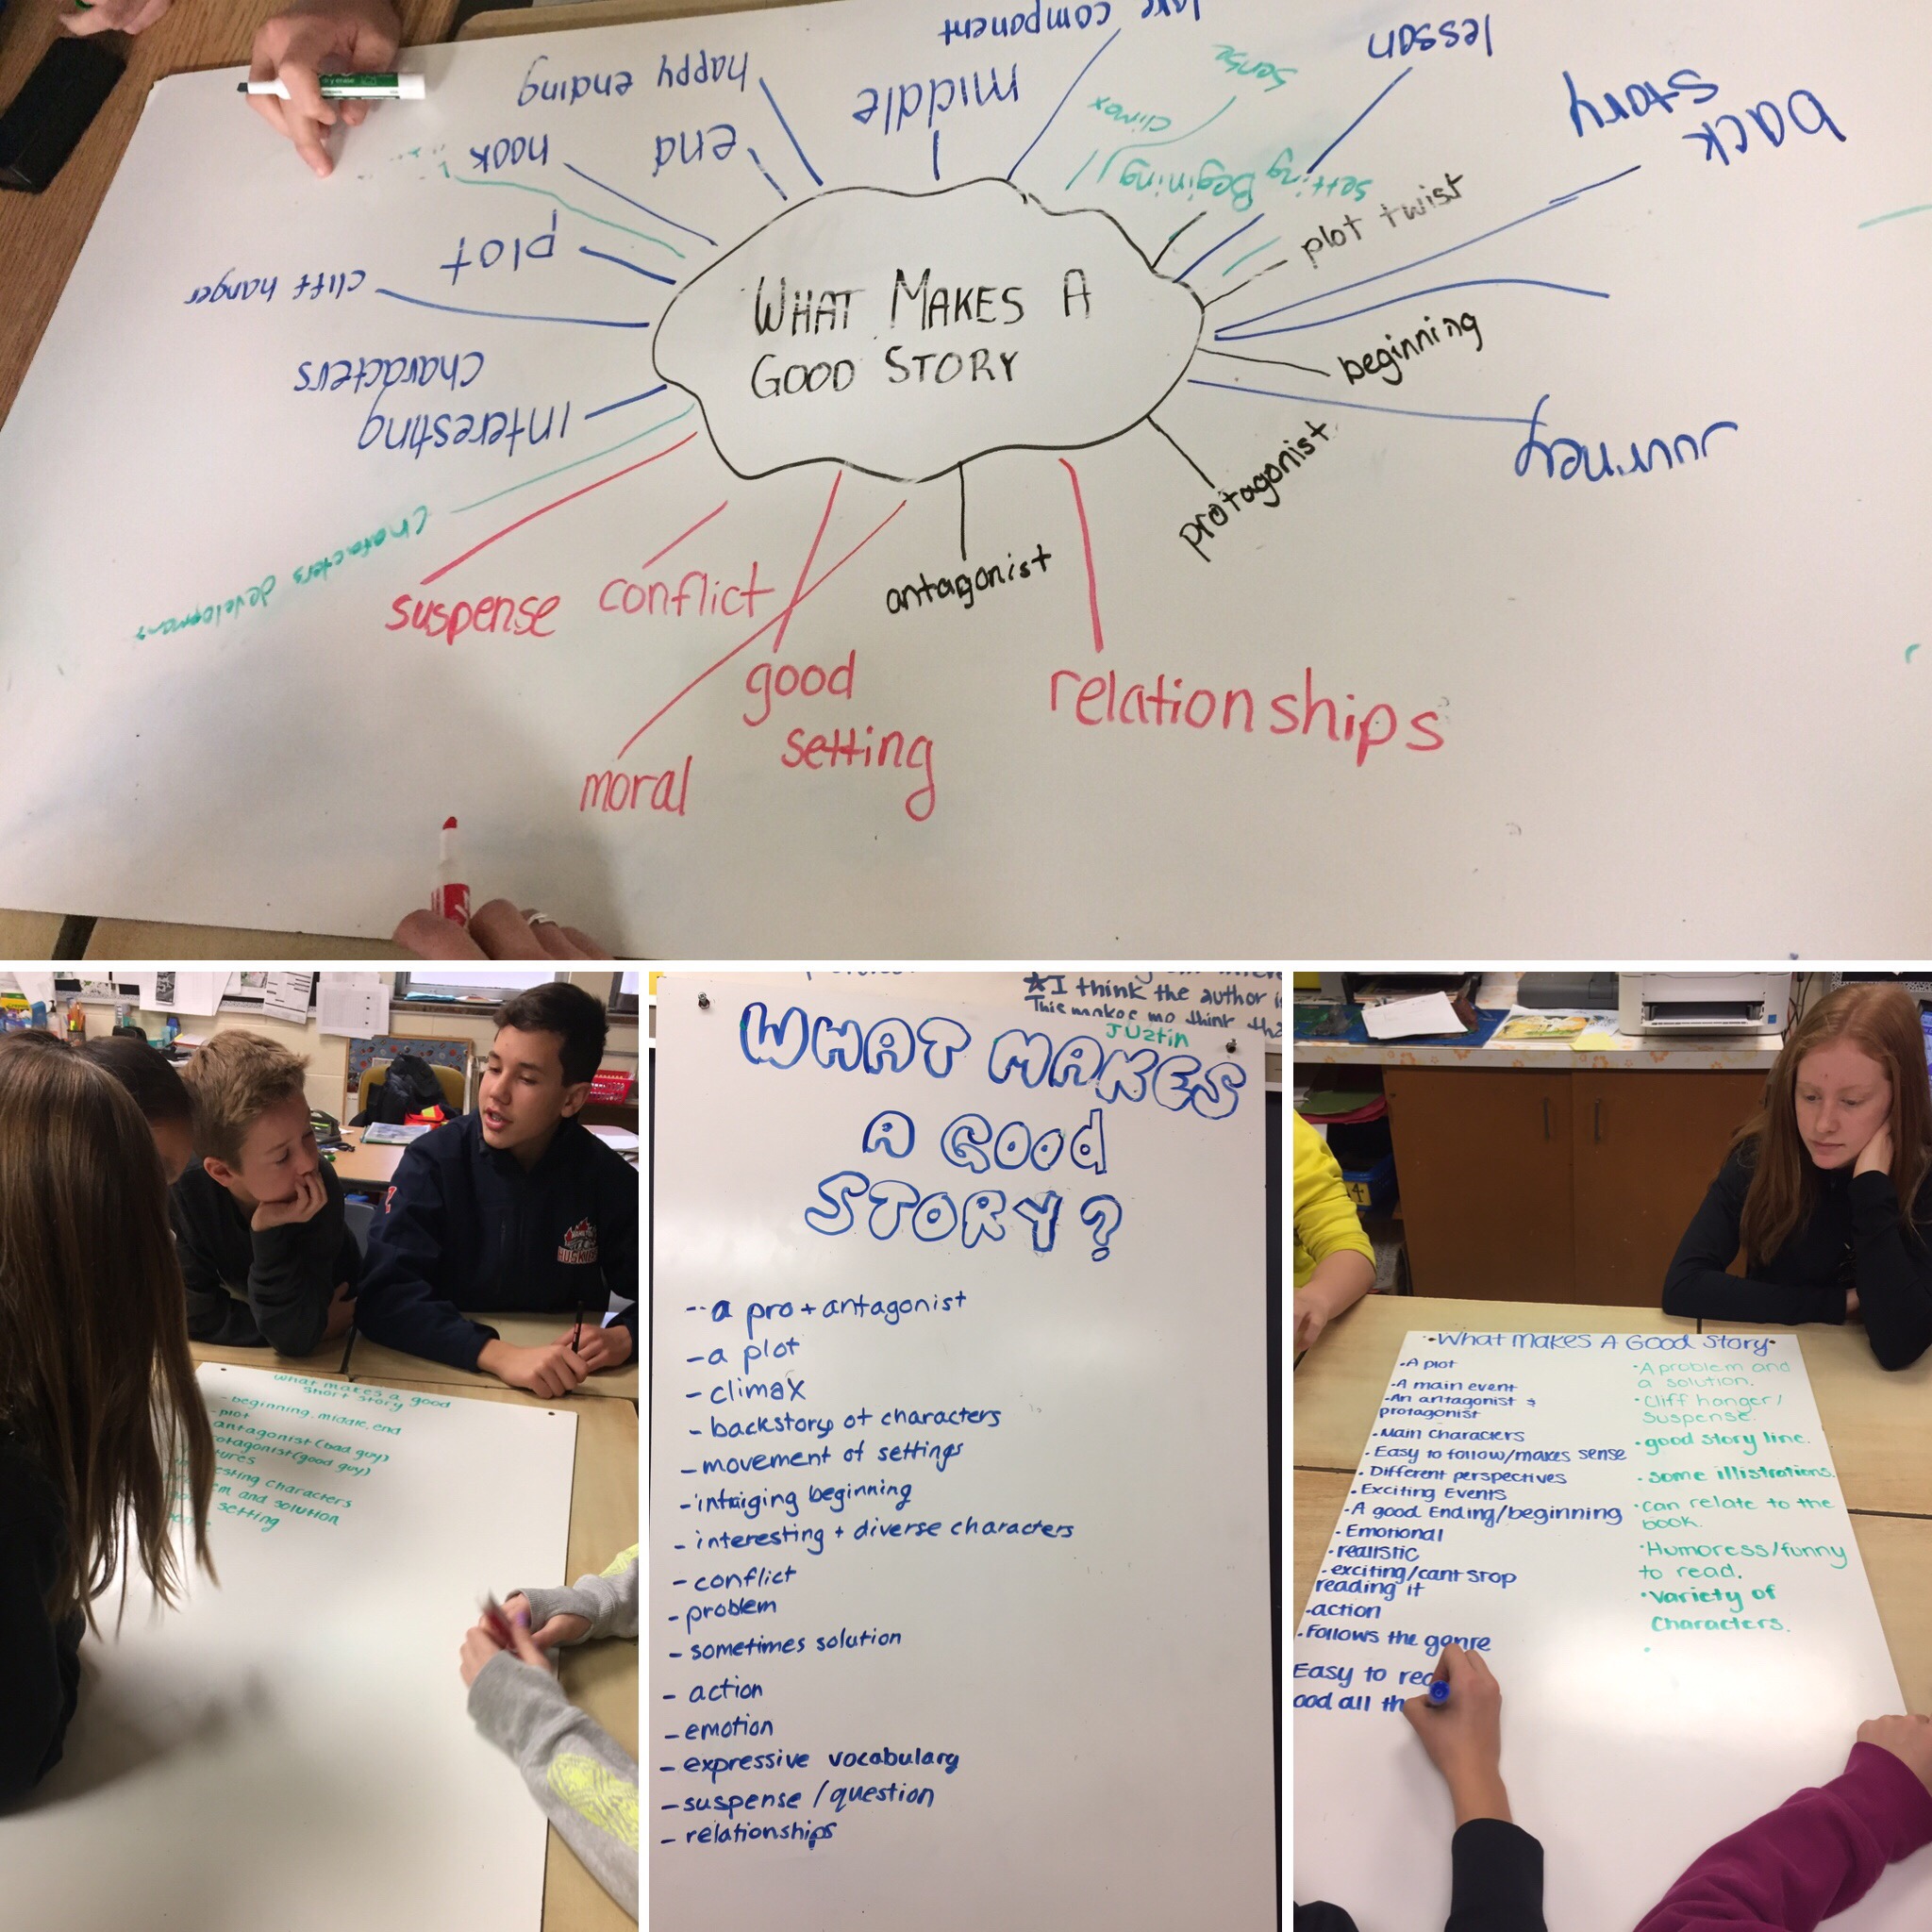 component
lesson
sense
happy ending
middle
climax
back
story
hook
end
Begining
setting
plot twist
plot
cliff hanger
WHAT MAKES A
GOOD STORY
beginning
characters
Interesting
Journey
protagonist
characters
suspense
conflict
antagonist
good
setting
relationships
moral
What makes a good
short story
- beginning, middle, end
- plot
antagonist (bad guy)
protagonist (good guy)
characters
and solution
setting
HUSKIES
★ I think the author
This makes me think
JUztin
WHAT MAKES
A GOOd
STORY?
-- a pro + antagonist
- a plot
- climax
- backstory of characters
- movement of settings
- intriging beginning
- interesting + diverse characters
- conflict
- problem
- sometimes solution
- action
- emotion
- expressive vocabulary
- suspense / question
- relationships
•What Makes A Good Story•
•A plot
•A main event
•An antagonist &
protagonist
•Main characters
•Easy to follow/makes sense
•Different perspectives
•Exciting Events
•A good Ending/beginning
•Emotional
•realistic
•exciting/cant stop
reading it
•action
•Follows the genre
Easy to
all
•A problem and
a solution.
•Cliff hanger/
Suspense.
•good story line.
•some illistrations.
•can relate to the
book.
•Humoress/funny
to read.
•Variety of
Characters.